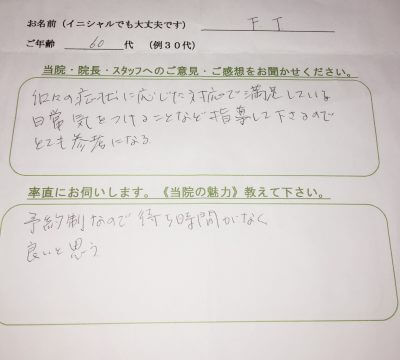 お名前（イニシャルでも大丈夫です） F T
ご年齢 60 代 （例３０代）
当院・院長・スタッフへのご意見・ご感想をお聞かせください。
個々の症状に応じた対応で満足している
日常気をつけることなど指導して下さるので
とても参考になる
率直にお伺いします。《当院の魅力》教えて下さい。
予約制なので待ち時間がなく
良いと思う